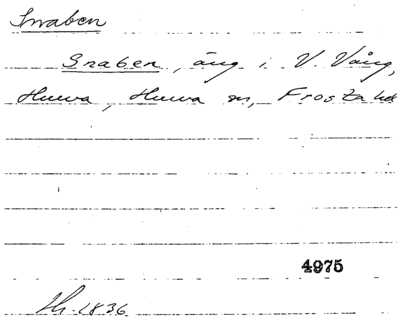 Snaben
Snaben, äng i V. Vång,
Hurva, Hurva sn, Frosta hd
4975
1836